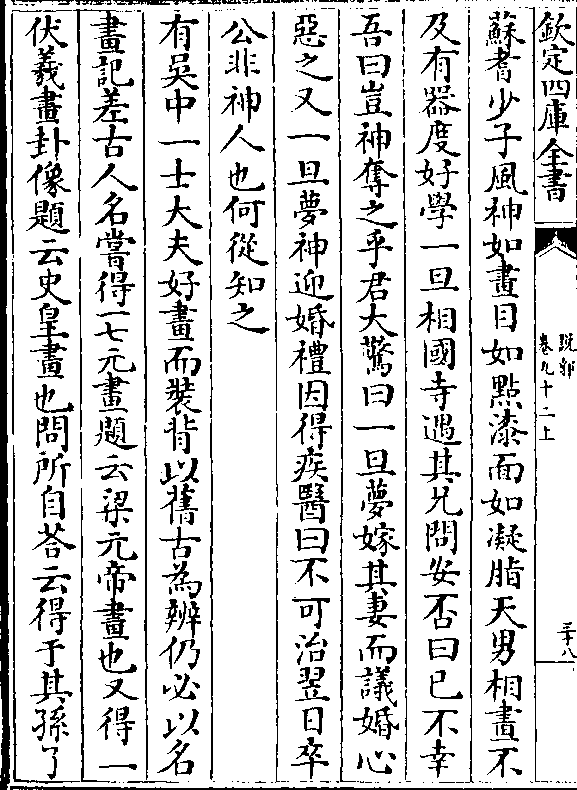 欽定四庫全書
說郛
卷九十二上
三十八
蘇耆少子風神如畫目如點漆面如凝脂天男相畫不
及有器度好學一旦相國寺遇其兄問安否曰已不幸
吾曰豈神奪之乎君大驚曰一旦夢嫁其妻而議婚心
惡之又一旦夢神迎婚禮因得疾醫曰不可治翌日卒
公非神人也何從知之
有吳中一士大夫好畫而裝背以舊古為辨仍必以名
畫記差古人名嘗得一七元畫題云梁元帝畫也又得一
伏羲畫卦像題云史皇畫也問所自荅云得于其孫了